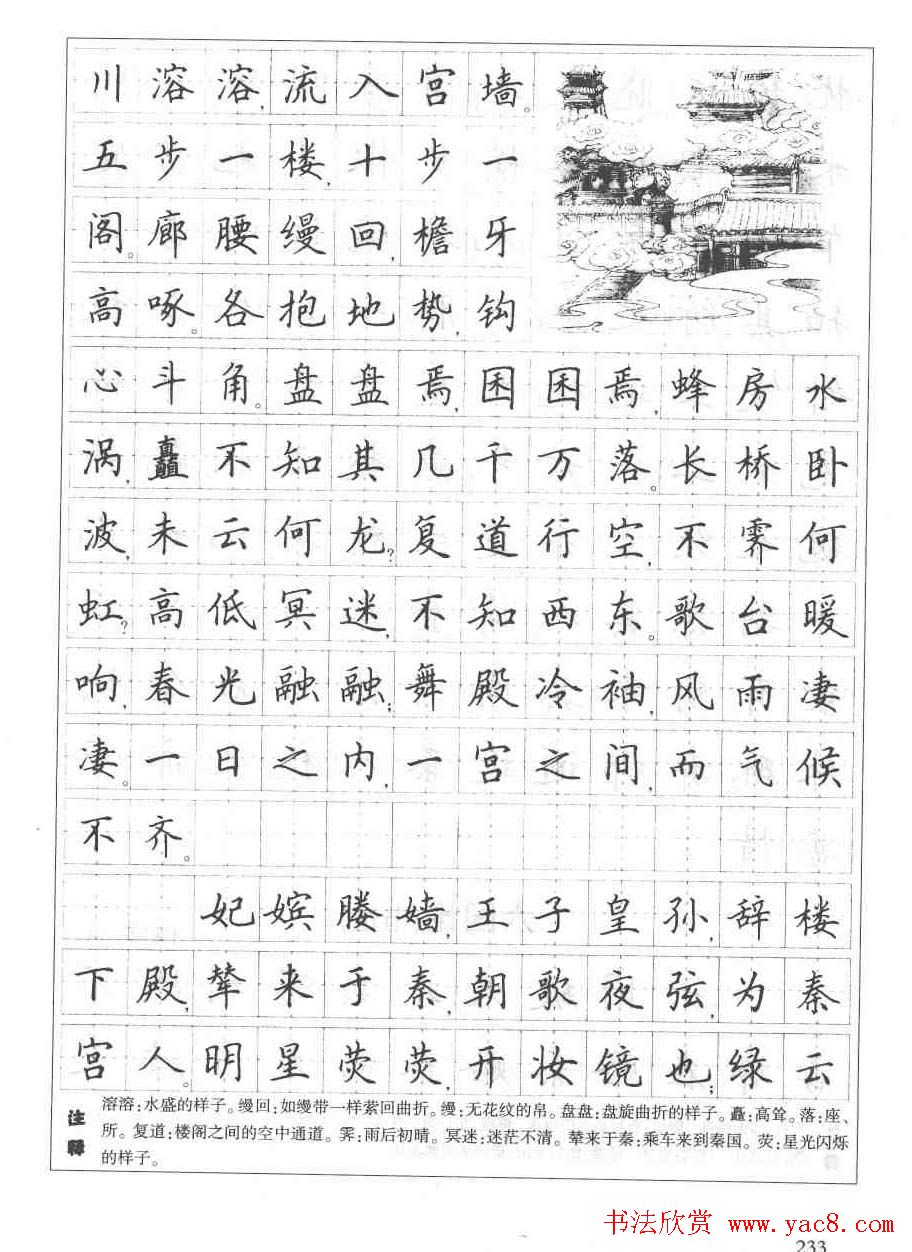 川溶溶,流入宫墙。
五步一楼,十步一
阁。廊腰缦回,檐牙
高啄。各抱地势,钩
心斗角。盘盘焉,囷囷焉,蜂房水
涡,矗不知其几千万落。长桥卧
波,未云何龙?复道行空,不霁何
虹?高低冥迷,不知西东。歌台暖
响,春光融融;舞殿冷袖,风雨凄
凄。一日之内,一宫之间,而气候
不齐。
妃嫔媵嫱,王子皇孙,辞楼
下殿,辇来于秦,朝歌夜弦,为秦
宫人。明星荧荧,开妆镜也;绿云
注释
溶溶:水盛的样子。缦回:如缦带一样萦回曲折。缦:无花纹的帛。盘盘:盘旋曲折的样子。矗:高耸。落:座、
所。复道:楼阁之间的空中通道。霁:雨后初晴。冥迷:迷茫不清。辇来于秦:乘车来到秦国。荧:星光闪烁
的样子。
书法欣赏 www.yac8.com
233